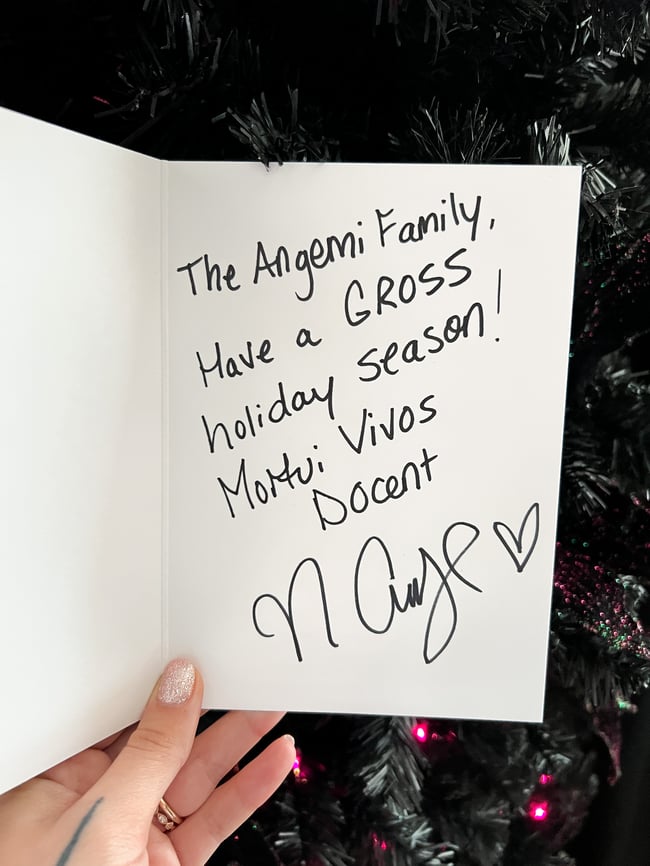 The Angemi Family,
Have a GROSS
holiday season!
Mortui Vivos
Docent